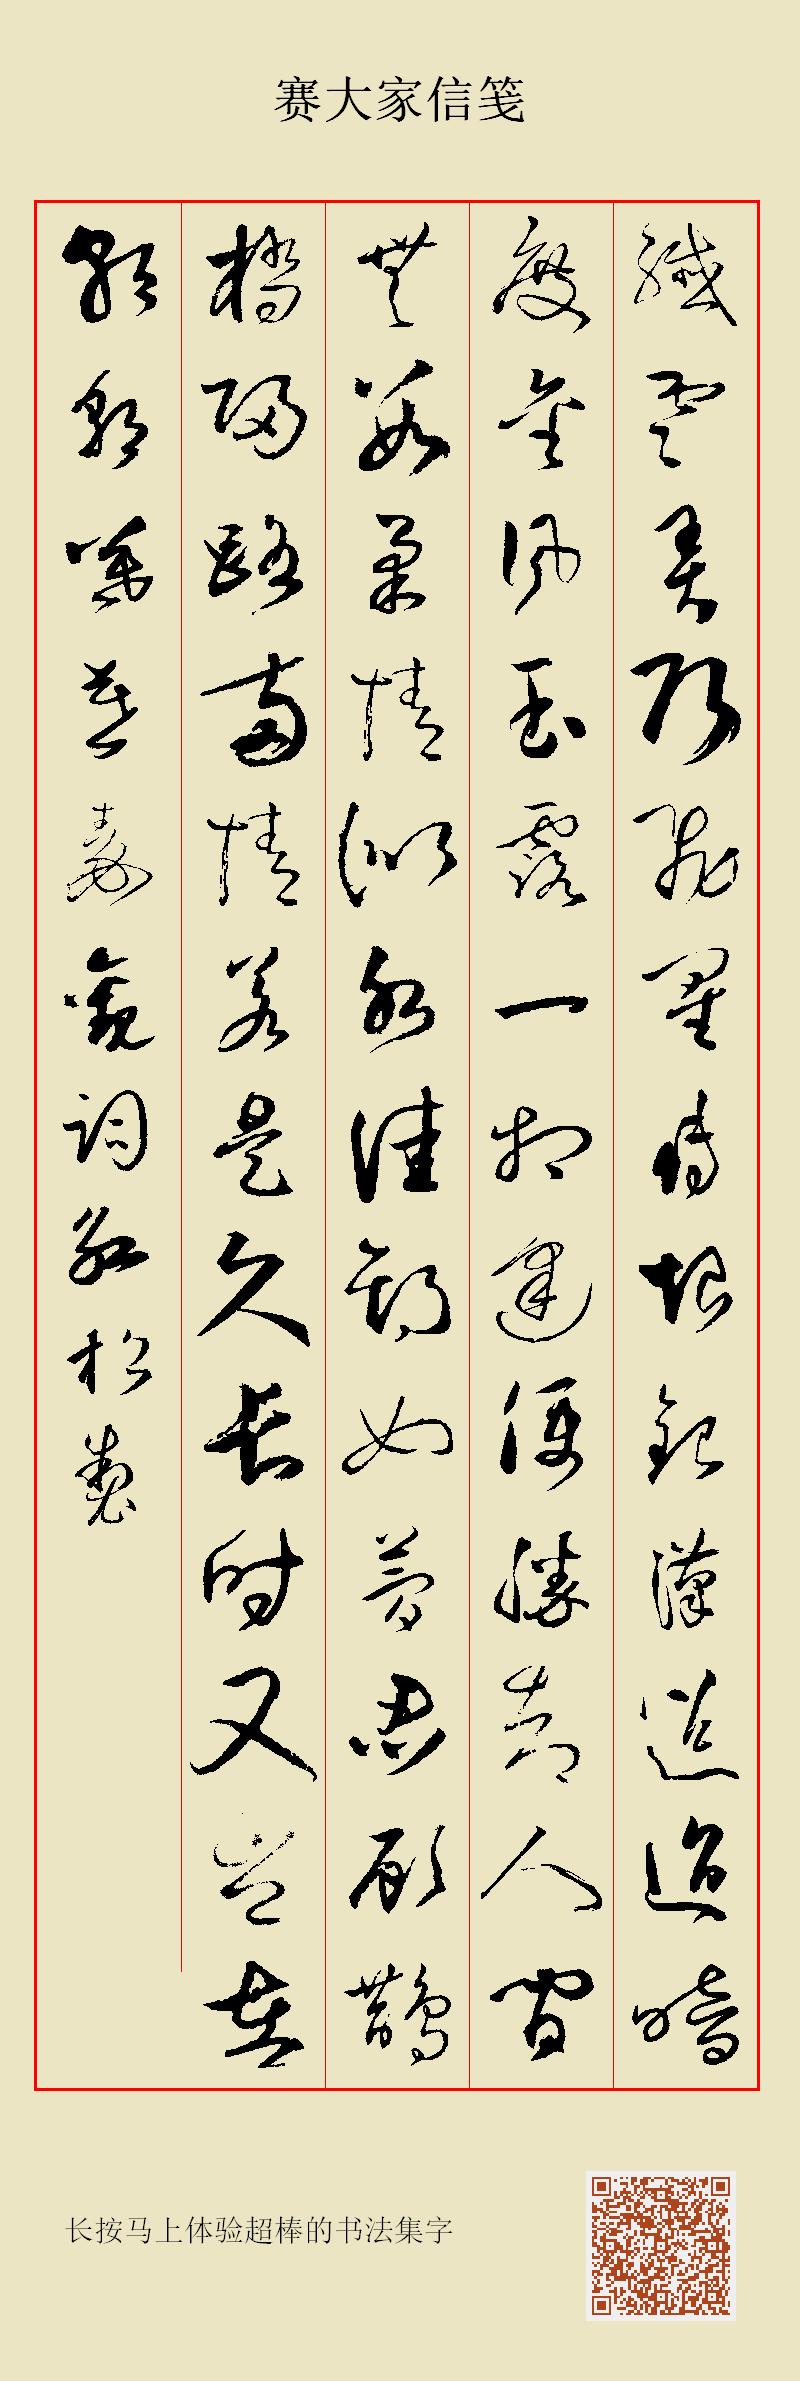 赛大家信笺
纖雲弄巧飛星傳恨銀漢迢迢暗
度金風玉露一相逢便勝却人間
無數柔情似水佳期如夢忍顧鵲
橋歸路兩情若是久長时又豈在
朝朝暮暮秦觀詞紅松製
长按马上体验超棒的书法集字